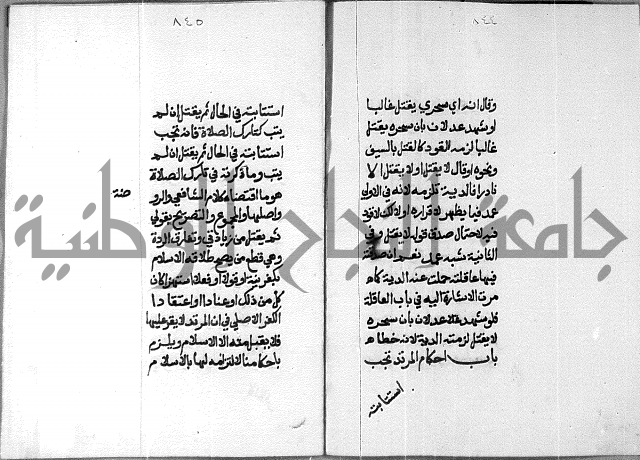 ٨٤٤
وقال انه اي سحري يقتل غالبا
او شهد عدلان بان سحره يقتل
غالبا لزمه القود كالقتل بالسيف
ونحوه او قال لا يقتل او لا يقتل الا
نادرا فالدية تلزمه لانه في الاولى
عمد فيما يظهر لاقراره
فيها لاحتمال صدق قوله لا يقتل وفي
الثانية شبه عمد نعم ان صدقة
فيها عاقلته حملت عنه الدية كما
مرت الاشارة اليه في باب العاقلة
فلو شهد عدلان بان سحره
لا يقتل لزمته الدية لانه خطاء
باب احكام المرتد تجب
استتابته
٨٤٥
استتابته في الحال ثم يقتل ان لم
يتب كتارك الصلاة فانه تجب
استتابته في الحال ثم يقتل ان لم
يتب وما ذكرته في تارك الصلاة
هو ما اقتضاه كلام الشافعي والرو
ضة
واصلها والمجموع والتصريح بقولي
ثم يقتل من زيادتي وتعارف الردة
وهي قطع من يصح طلاقه الاسلام
بكفر بنية او قولا او فعلا استهزا كان
كل من ذلك او عنادا او اعتقادا
الكفر الاصلي في ان المرتد لا يقر عليها
فلا يقبل منه الا الاسلام ويلزم
باحكامنا لالتزامه لها بالاسلام
جامعة النجاح الوطنية